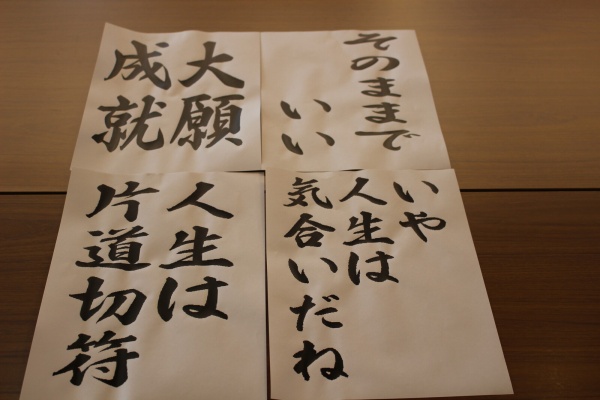 大願
成就
そのままで
いい
人生は
片道切符
いや
人生は
気合いだね